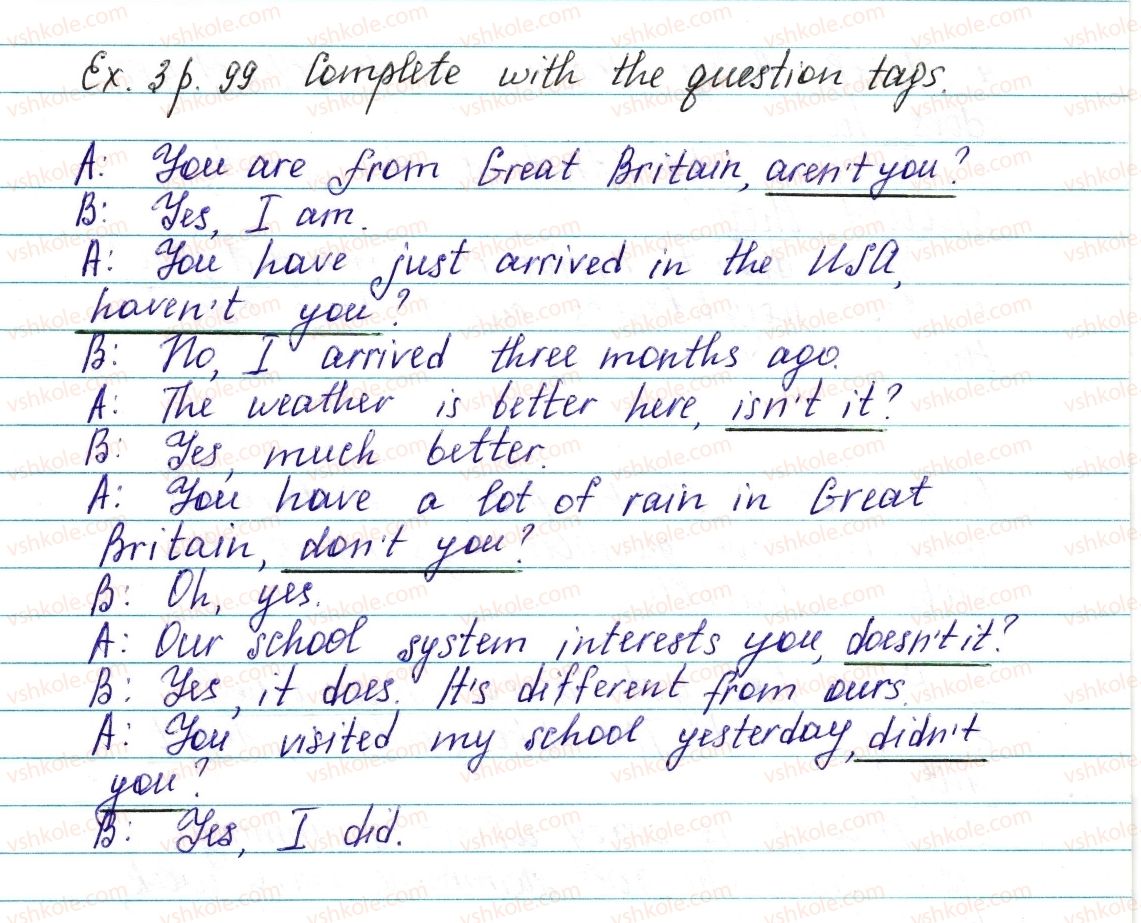 Ex. 3 p. 99 Complete with the question tags.
A: You are from Great Britain, aren't you?
B: Yes, I am.
A: You have just arrived in the USA,
haven't you?
B: No, I arrived three months ago.
A: The weather is better here, isn't it?
B: Yes, much better.
A: You have a lot of rain in Great
Britain, don't you?
B: Oh, yes.
A: Our school system interests you, doesn't it?
B: Yes, it does. It's different from ours.
A: You visited my school yesterday, didn't
you?
B: Yes, I did.
vshkole.com